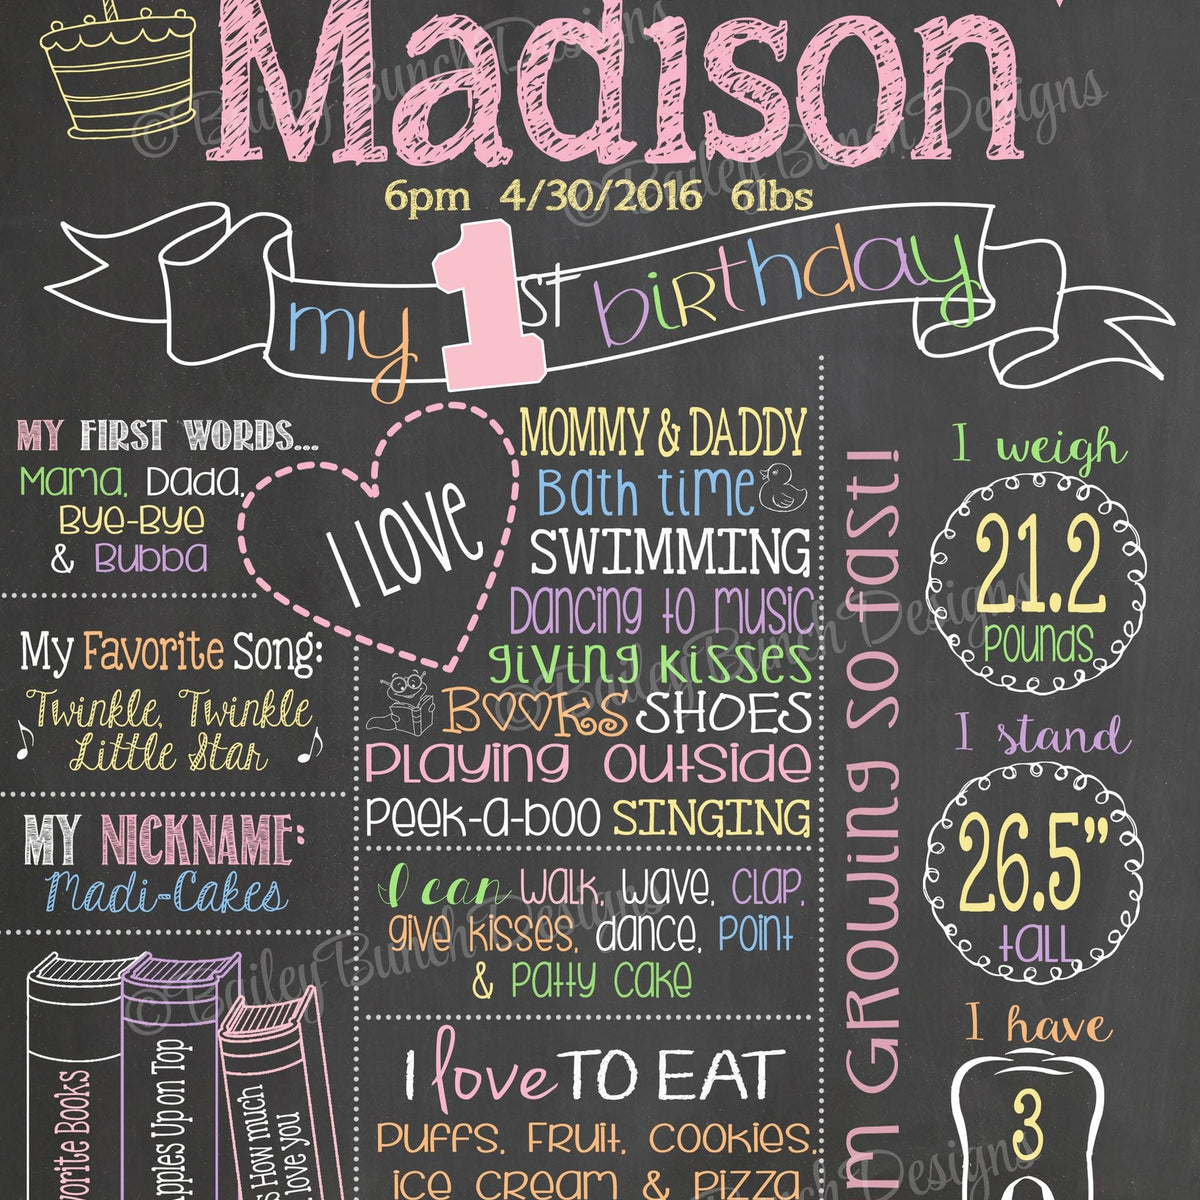 Madison
6pm 4/30/2016 6lbs
my 1st birthday
MY FIRST WORDS...
Mama, Dada,
Bye-Bye
& Bubba
My Favorite Song:
Twinkle, Twinkle
Little Star
MY NICKNAME:
Madi-Cakes
Books
Apples Up on Top
How much
love you
I LOVE
MOMMY & DADDY
Bath time
SWIMMING
Dancing to music
giving kisses
BOOKS SHOES
Playing outside
Peek-a-boo SINGING
I can walk, wave, clap,
give kisses, dance, point
& patty cake
I love TO EAT
PUFFS, FRUIT, COOKIES,
ICE CREAM & PIZZA
GROWING so fast!
I weigh
21.2
POUNDS
I stand
26.5”
tall
I have
3
© Bailey Bunch Designs
© Bailey Bunch Designs
© Bailey Bunch Designs
© Bailey Bunch Designs